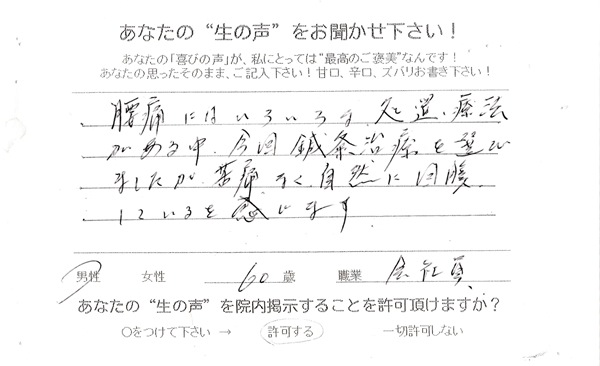 あなたの “生の声” をお聞かせ下さい！
あなたの「喜びの声」が、私にとっては“最高のご褒美”なんです！
あなたの思ったそのまま、ご記入下さい！甘口、辛口、ズバリお書き下さい！
腰痛にはいろいろな 療法
がある中、今回 鍼灸治療を選び
ましたが 苦痛なく自然に回復
しているを感じます
男性 女性 60 歳 職業 会社員
あなたの “生の声” を院内掲示することを許可頂けますか？
○をつけて下さい → 許可する 一切許可しない